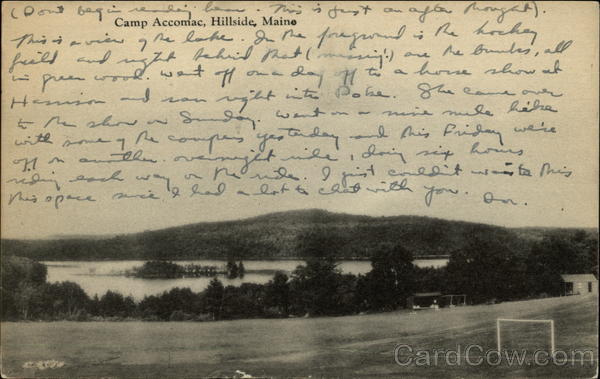 (Don't begin readin' here. This is just an after thought).
Camp Accomac, Hillside, Maine
This is a view of the lake. In the foreground is the hockey
field and right behind that (missing!) are the bunks, all
in green wood. Went off on a day off to a horse show at
Harrison and ran right into Dotse. She came over
to the show on Sunday. Went on a nine mile hike
with some of the campers yesterday and this Friday we're
off on another overnight ride, doing six hours
riding each way on the ride. I just couldn't waste this
this space since I had a lot to chat with you. Dor.
CardCow.com